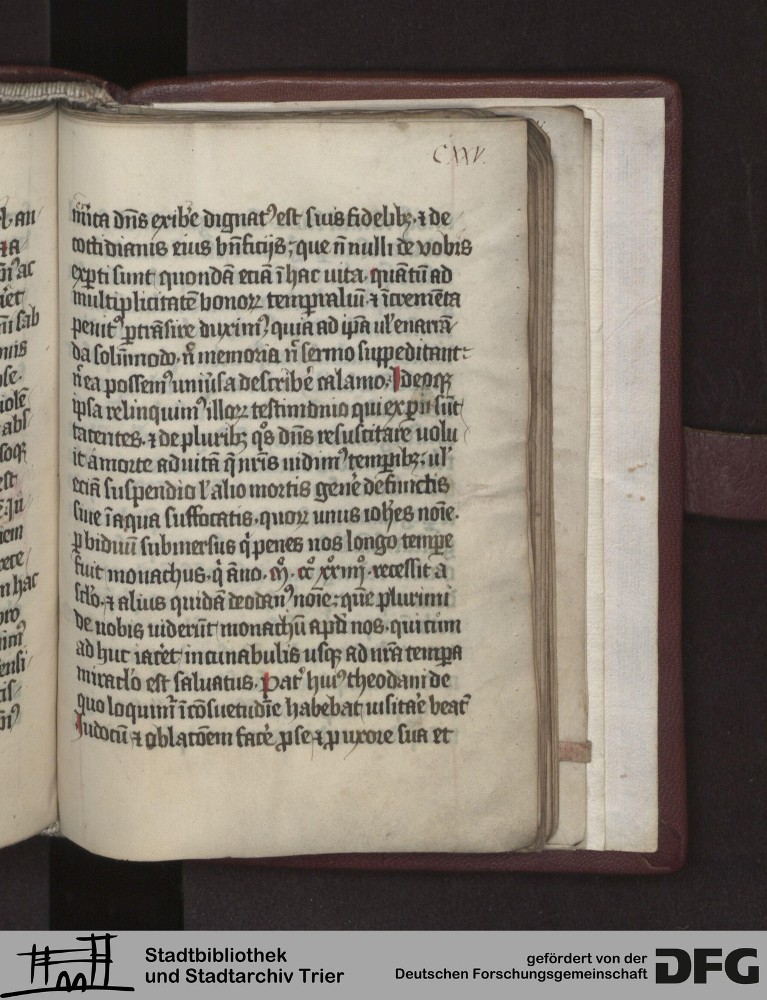 CXXV.
mĩta dñs exibe dignatꝰ est suis fidelibꝫ. ⁊ de
cottidianis eius bñficijs; que ñ nulli de vobis
exꝑti sunt quondā eciā ĩ hac uita. quātū ad
multiplicitatē bonoꝝ temꝑalium ⁊ ĩcremēta
penitꝰ ꝑtrāsire duximꝰ quia ad ip̄a ul' enarrā
da solūmodo. ñ memoria ñ sermo suppeditant:
ñ ea possemꝰ uniũsa describe calamo. Ideoqꝫ
ipsa relinquimꝰ illoꝝ testimonio qui exꝑti sūt
tacentes. ⁊ de pluribꝫ qͦs dñs resuscitare uolu
it a morte ad uitā q̄ nr̄is uidimꝰ temꝑibꝫ: ul'
eciā suspendio l' alio mortis gene defunctis
siue ĩ aqua suffocatis. quoꝝ unus ioh̄es noīe.
ꝑ biduū submersus q̇ penes nos longo temꝑe
fuit monachus. q̇ āno. mͦ. ccͦ xxiiijͦ. recessit a
sc̄lo. ⁊ alius quidā deodatꝰ noīe: quē plurimi
de uobis uiderūt monachū apd̄ nos. qui cum
ad huc iacet in cunabulis usqꝫ ad ur̄a temꝑa
miraclo est saluatus. Patr̄ huiꝰ theodani de
quo loquimr̄ ĩ cōsuetudīe habebat uisitae beat̄
Iudocū ⁊ oblatōem face ꝓ se ⁊ ꝓ uxore sua et
Stadtbibliothek
und Stadtarchiv Trier
gefördert von der
Deutschen Forschungsgemeinschaft
DFG